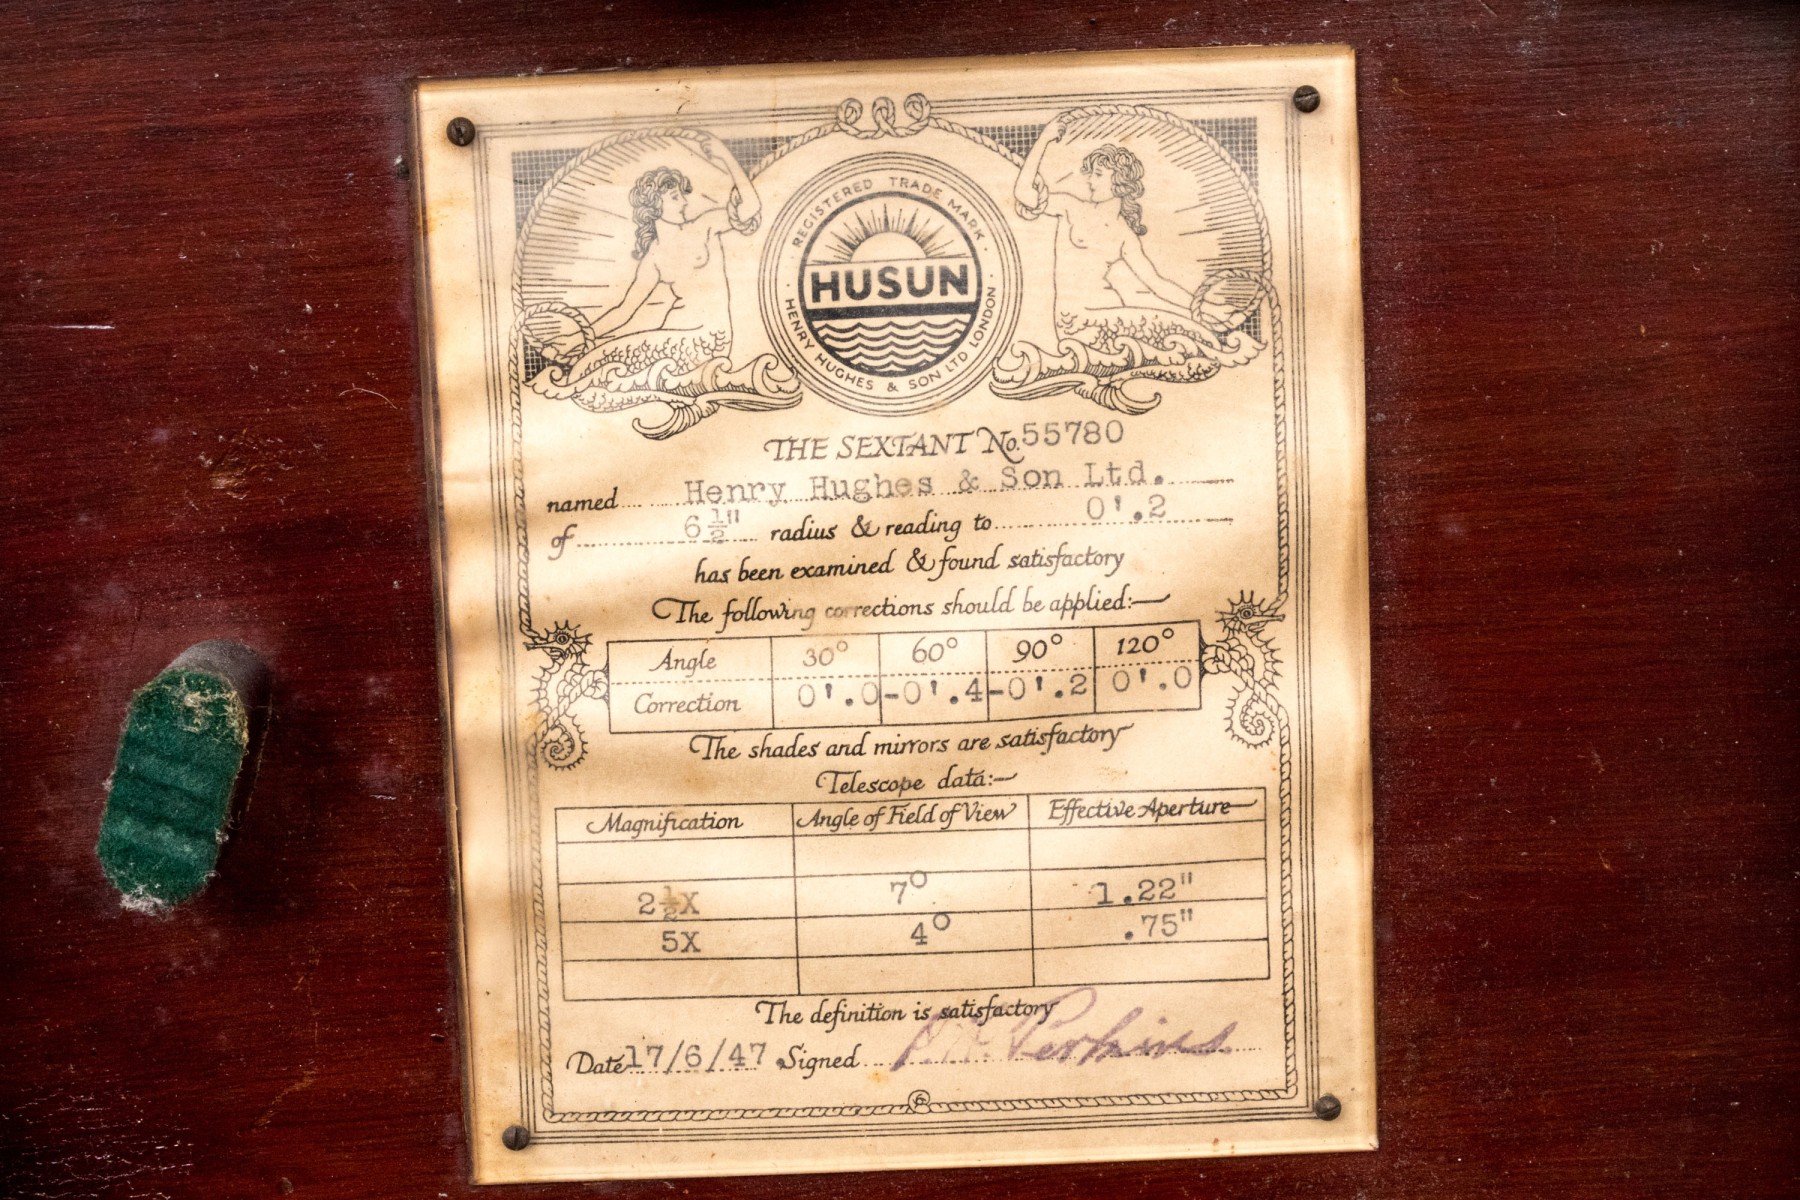 REGISTERED TRADE MARK
HUSUN
HENRY HUGHES & SON LTD LONDON
THE SEXTANT No. 55780
named Henry Hughes & Son Ltd.
of 6½" radius & reading to 0'.2
has been examined & found satisfactory
The following corrections should be applied:—
Angle 30° 60° 90° 120°
Correction 0'.0 -0'.4 -0'.2 0'.0
The shades and mirrors are satisfactory
Telescope data:—
Magnification Angle of Field of View Effective Aperture
2½X 7° 1.22"
5X 4° .75"
The definition is satisfactory
Date 17/6/47 Signed Perkins